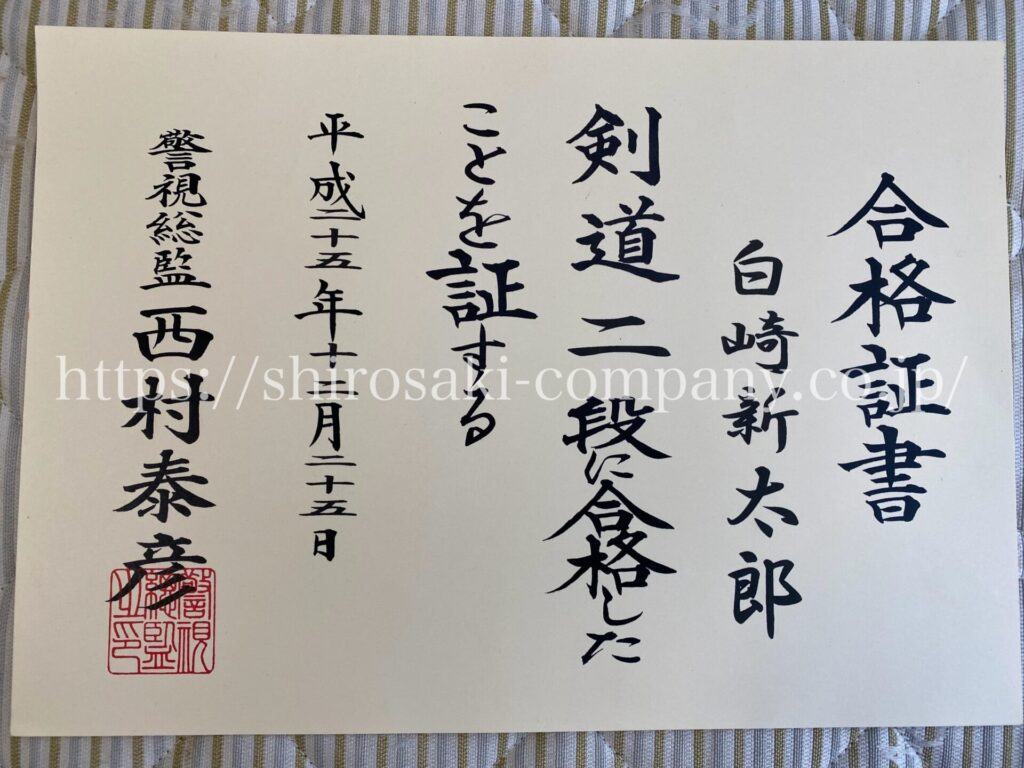 合格証書
白崎新太郎
剣道二段に合格した
ことを証する
平成二十五年十二月二十五日
警視総監 西村泰彦
警視
総監
之印
https://shirosaki-company.co.jp/